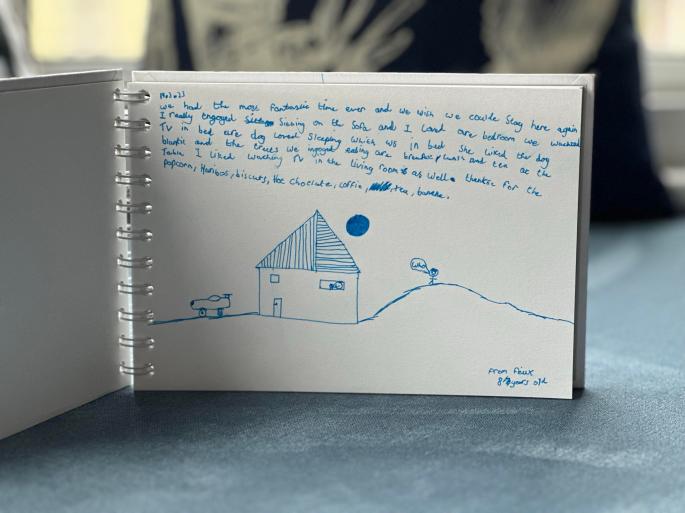 we had the most fantastic time ever and we wish we coulde Stay here again
I really engoyed Sitting on the Sofa and I Loved are bedroom we wached
TV in bed are dog Loved Sleeping which us in bed She Liked the dog
blankit and the treats we ingoyed eating are breakf/lunch and tea at the
Table I Liked waching TV in the Living room as well. thanks for the
popcorn, Haribos, biscuts, Hot choclate, coffie, tea,
Who
From
years old